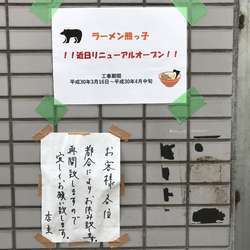 ラーメン熊っ子
!!近日リニューアルオープン!!
工事期間
平成30年3月16日～平成30年4月中旬
お客様各位
都合によりお休み致します。
再開致しますので
宜しくお願い致します。
店主